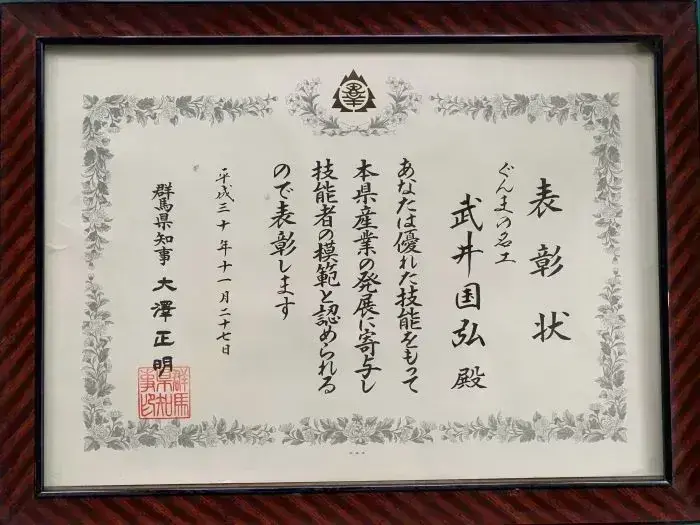 表彰状
ぐんまの名工
武井国弘 殿
あなたは優れた技能をもって
本県産業の発展に寄与し
技能者の模範と認められる
ので表彰します
平成三十年十一月二十七日
群馬県知事 大澤正明
群馬県知事印